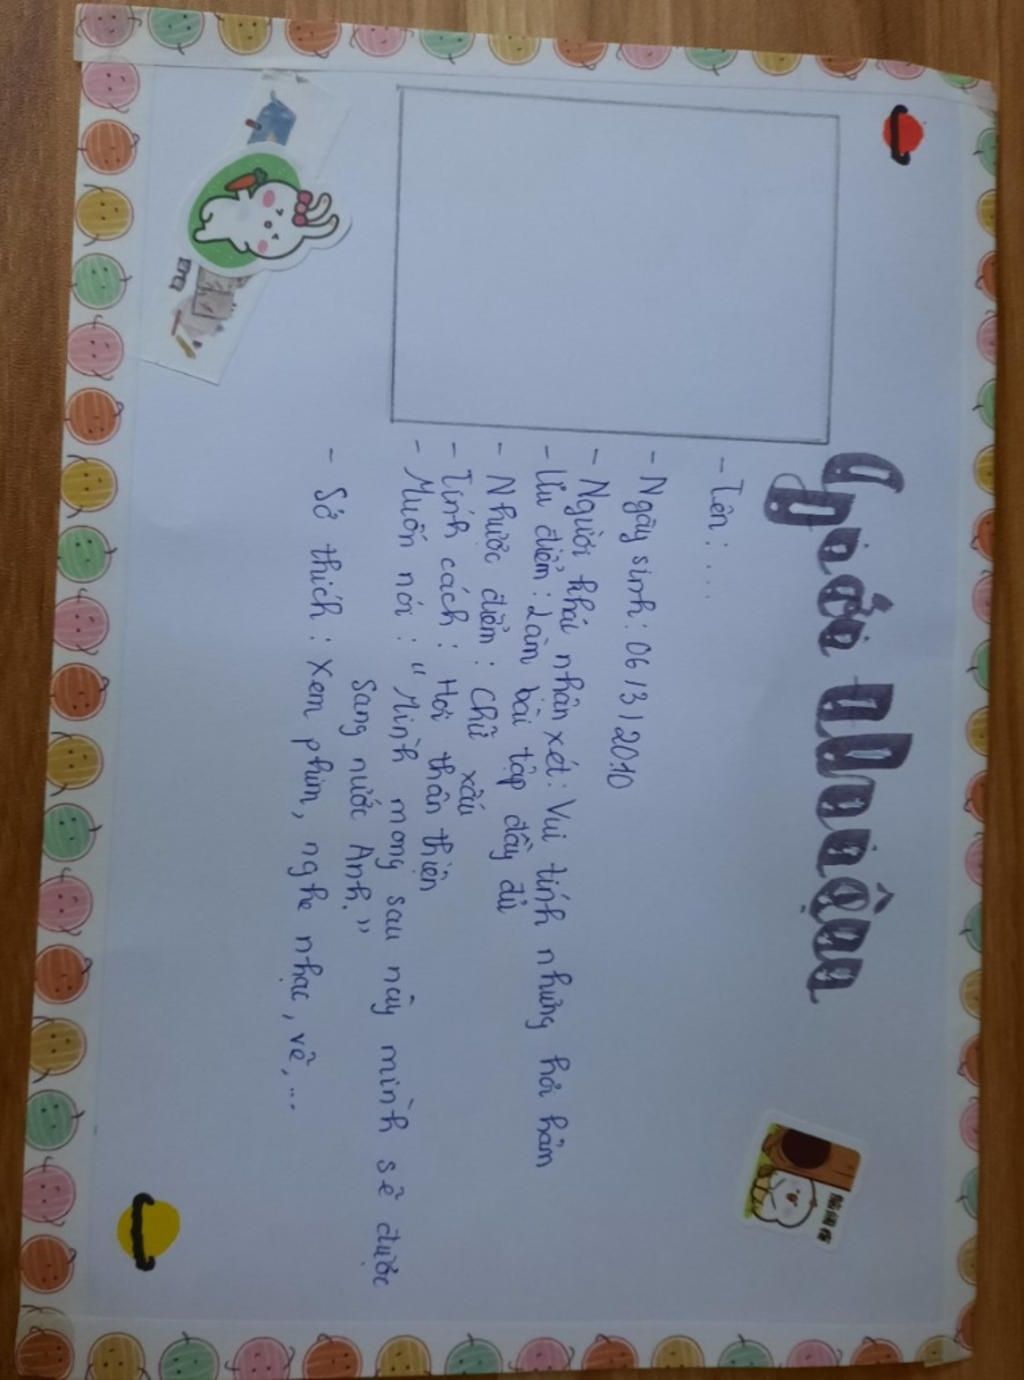 Giới thiệu
- Tên : ...
- Ngày sinh : 06 / 3 / 2010
- Người khác nhận xét : Vui tính nhưng hơi hâm
- Ưu điểm : Làm bài tập đầy đủ
- Nhược điểm : Chữ xấu
- Tính cách : Hơi thân thiện
- Muốn nói : " Mình mong sau này mình sẽ được
sang nước Anh. "
- Sở thích : Xem phim, nghe nhạc, vẽ, ...